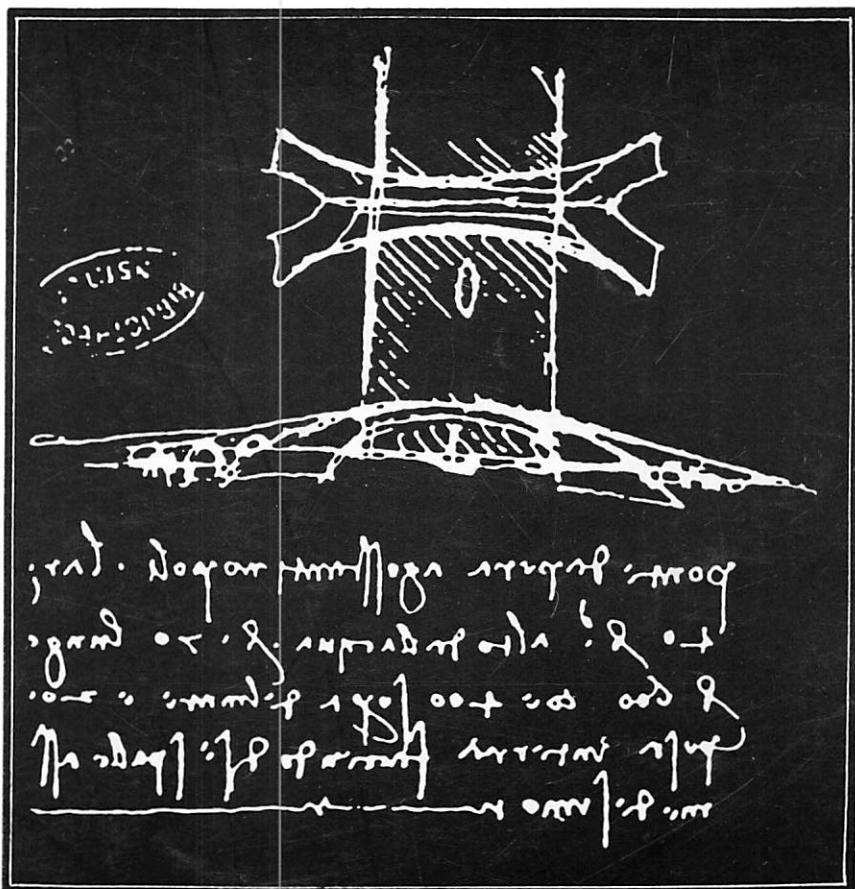 ponte da pera a gosstantinopoli largo
40 br alto dallacqua br 70 lungo
br 600 coe 400 sopra del mare e 200
posa in terra faciendo di se spalle a sse
medesimo